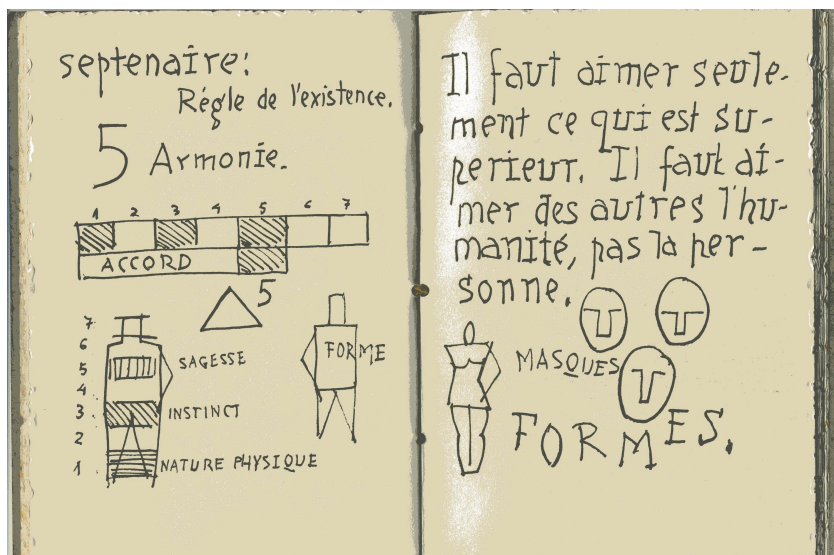 septenaire:
Régle de l'existence.
5 Armonie.
1 2 3 4 5 6 7
ACCORD
5
7
6
5 SAGESSE
4
3 INSTINCT
2
1 NATURE PHYSIQUE
FORME
Il faut aimer seule-
ment ce qui est su-
perieur. Il faut ai-
mer des autres l'hu-
manité, pas la per-
sonne.
MASQUES
FORMES.